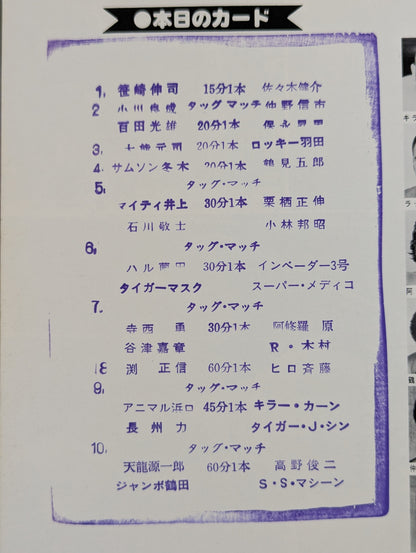 ●本日のカード
1. 笹崎伸司 15分1本 佐々木健介
2 小川良成 タッグマッチ 仲野信市
百田光雄 20分1本
3. 20分1本 ロッキー羽田
4. サムソン冬木 20分1本 鶴見五郎
5. タッグ・マッチ
マイティ井上 30分1本 栗栖正伸
石川敬士 小林邦昭
6. タッグ・マッチ
ハル薗田 30分1本 インベーダー3号
タイガーマスク スーパー・メディコ
7. タッグ・マッチ
寺西 勇 30分1本 阿修羅 原
谷津嘉章 R・木村
8 渕 正信 60分1本 ヒロ斉藤
9. タッグ・マッチ
アニマル浜口 45分1本 キラー・カーン
長州 力 タイガー・J・シン
10. タッグ・マッチ
天龍源一郎 60分1本 高野俊二
ジャンボ鶴田 S・S・マシーン
キ
ラ
阿